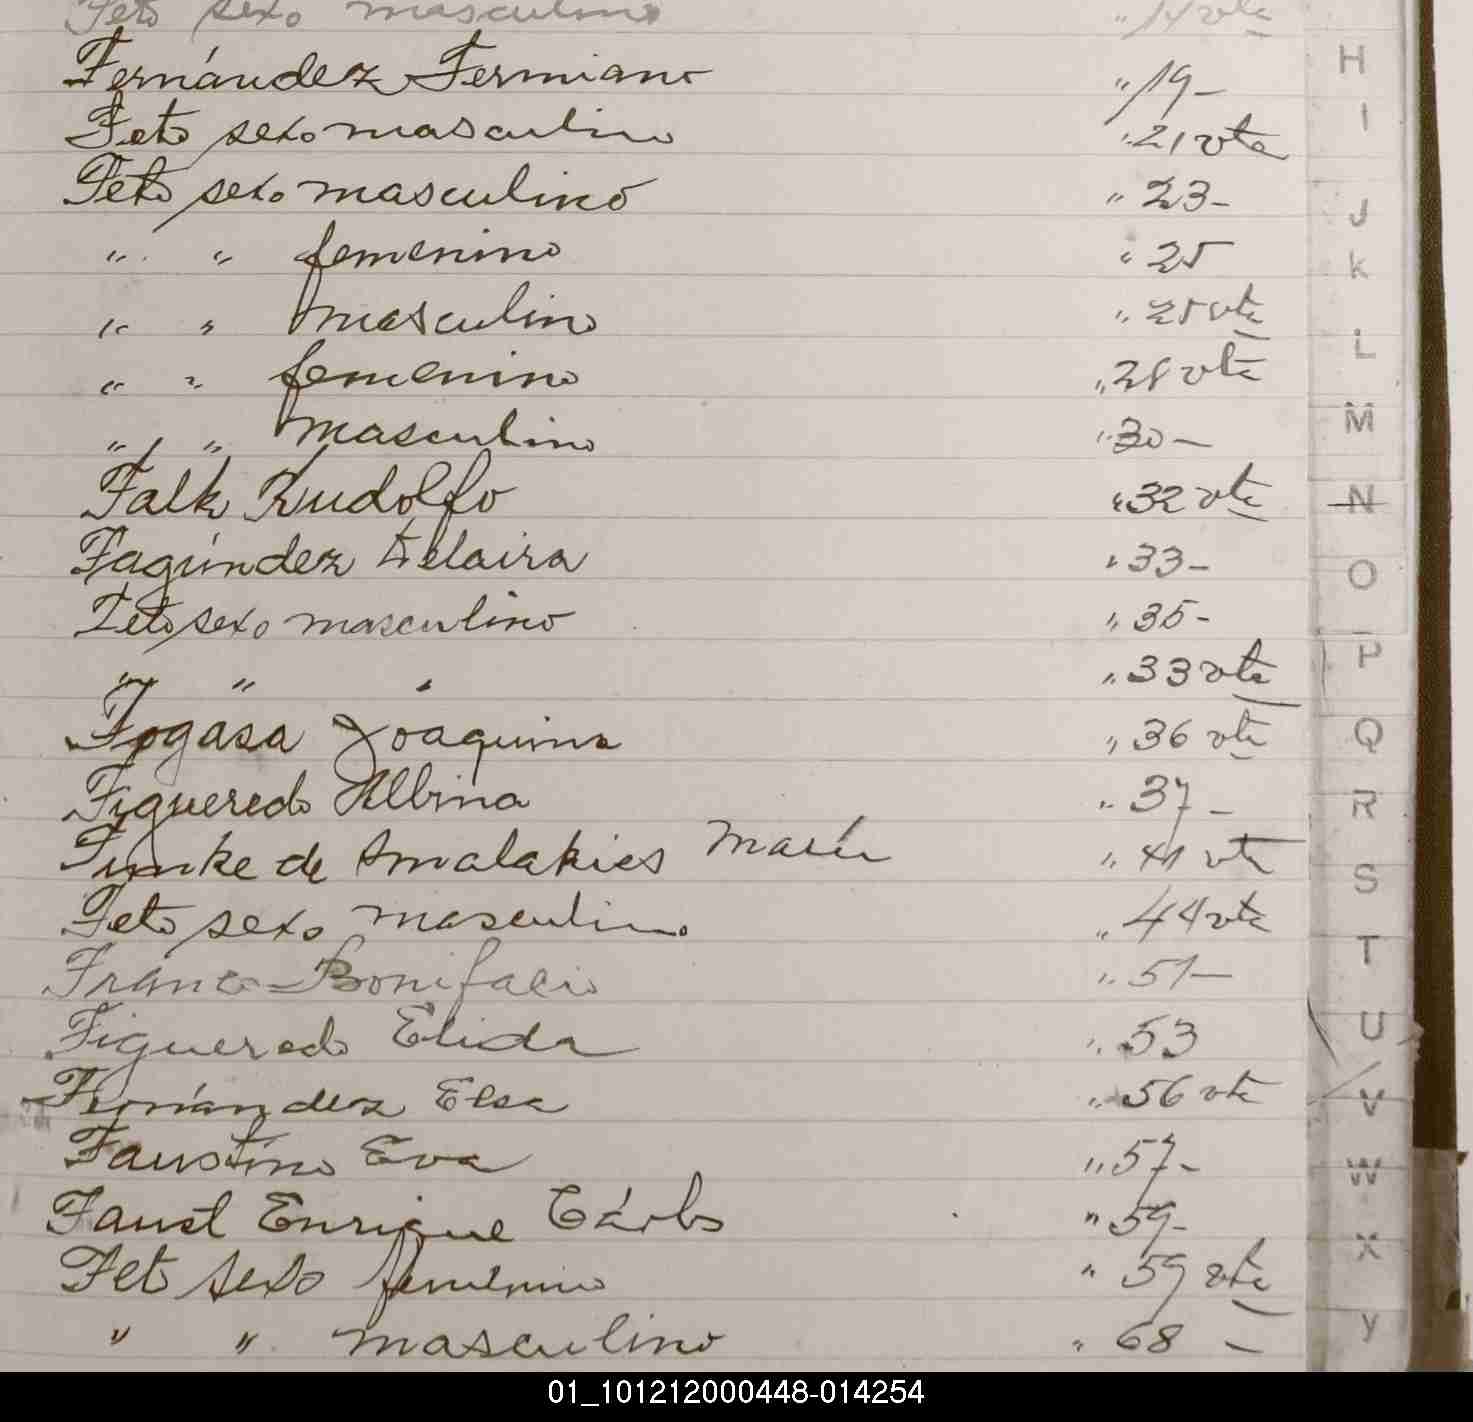 Feto sexo masculino " 14 vta
Fernández Fermiano " 19 -
Feto sexo masculino " 21 vta
Feto sexo masculino " 23 -
" " femenino " 25
" " masculino " 25 vta
" " femenino " 28 vta
" " masculino " 30 -
Falk Rudolfo " 32 vta
Fagúndez Delaira " 33 -
Feto sexo masculino " 35 -
" " " " 33 vta
Fogasa Joaquina " 36 vta
Figueredo Albina " 37 -
Funke de Amalakies María " 41 vta
Feto sexo masculino " 44 vta
Franco Bonifacio " 51 -
Figueredo Elida " 53
Fernández Elsa " 56 vta
Faustino Eva " 57 -
Faust Enrique Cárlos " 59 -
Feto sexo femenino " 59 vta
" " masculino " 68 -
H
I
J
K
L
M
N
O
P
Q
R
S
T
U
V
W
X
Y
01_101212000448-014254